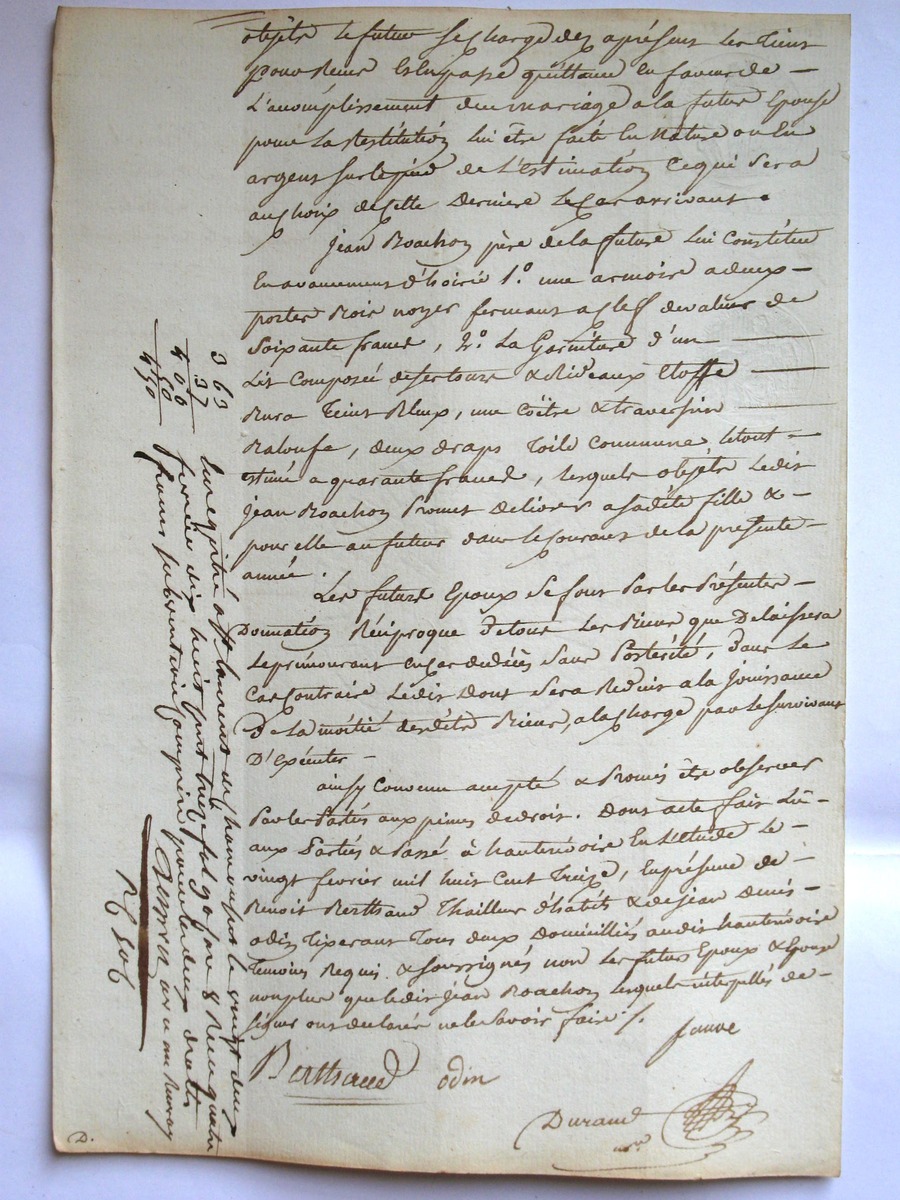 objéts le futur se charge des aprésent les tient
pour Reçus Et En passe quittance En faveur de —
L'acomplissement du mariage a la future Epouse
pour La Restitution lui être faite En Nature ou En
argent sur le pied de L'estimation Ce qui sera
au choix de Cette Derniere le Cas arrivant.
Jean Roachon père de la future Lui Constitue
En avancement d'hoirie 1.° une armoire a deux —
portes Bois noyer fermant a clef de valeur de
Soixante francs, 2.° La Garniture d'un —
Lit Composée de ses tours & Rideaux Etoffe —
Bura teint Bleux, une Coëtre & traversin —
Baloufe, deux draps Toile Commune le tout —
estimé a quarante francs, lesquels objéts ledit
Jean Roachon Promet Delivrer a sadite fille & —
pour elle au futur dans le Courant de la présente —
année.
Les futurs Epoux se font Par les Présentes —
Donnation Réciproque De tous Les Bieux que Delaissera
Le prémourant en Cas de décès sans Postérité, Dans Le
Cas Contraire Ledit Dont Sera Reduit a la Jouissance
De la moitié desdits Bieux, a la Charge par le Survivant
D'Exécuter —
ainsy Convenu accepté & Promis être observer
Par les Partiés aux peines de droit. Dont acte fait Lû —
aux Partiés & Passé à hauterivoire En L'etude Le —
vingt fevrier mil huit Cent Treize, En présence de —
Benoit Berthaud Thailleur d'habits & de Jean Denis —
odin Tixerant Tous deux Domiciliés audit hauterivoire
témoins Requis & Soussignés non Les futurs Epoux & Epouse
non plus que ledit Jean Roachon Lesquels intérpellés de —
Signer ont declarés ne le Savoir faire ./.
faure
Berthaud odin
Durand
no.re
D.
363
37
400
50
450
Enregistré a St Laurent de chamousset le vingt deux
fevrier dix huit cent treize fol 90 Case 8 Reçu quatre
francs subvention Comprise pour les deux droits